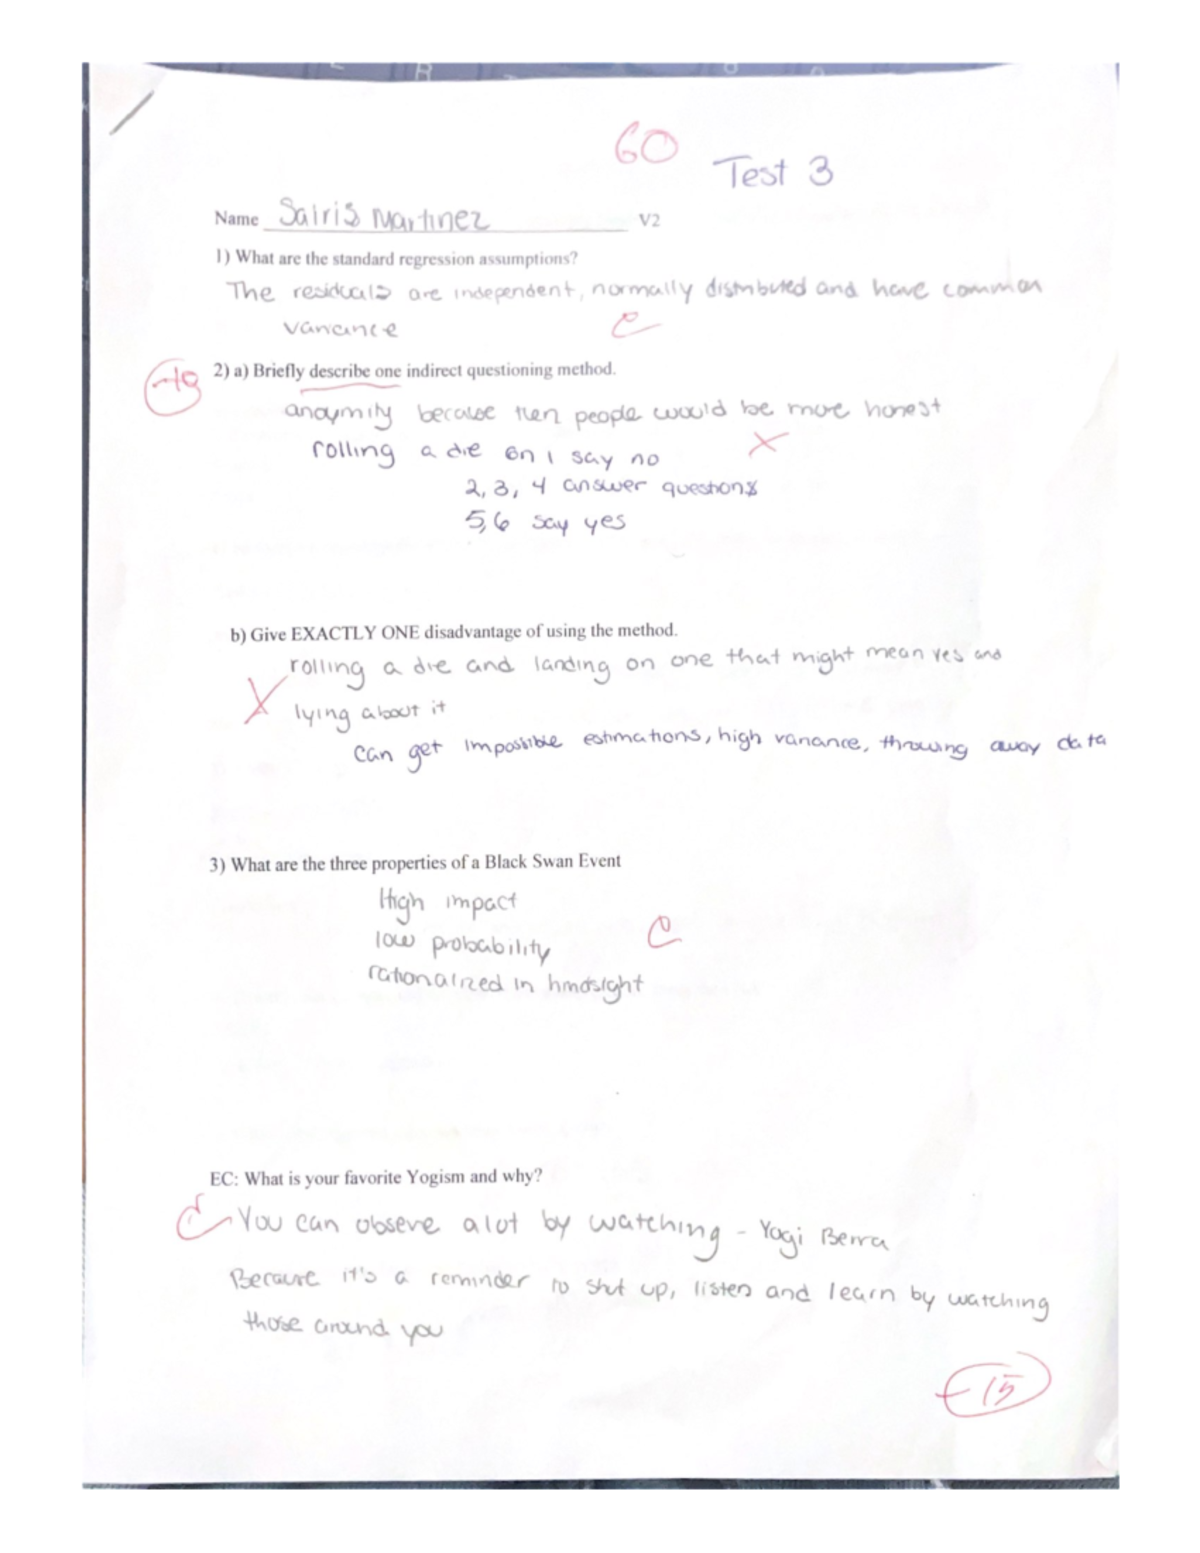 60
Test 3
Name Sairis Martinez V2
1) What are the standard regression assumptions?
The residuals are independent, normally distributed and have common
variance
C
2) a) Briefly describe one indirect questioning method.
anoymity because then people would be more honest
rolling a die on 1 say no
2, 3, 4 answer questions
5,6 say yes
b) Give EXACTLY ONE disadvantage of using the method.
rolling a die and landing on one that might mean yes and
lying about it
can get impossible estimations, high variance, throwing away data
3) What are the three properties of a Black Swan Event
High impact
low probability
C
rationalized in hindsight
EC: What is your favorite Yogism and why?
C
You can observe alot by watching - Yogi Berra
Because it's a reminder to shut up, listen and learn by watching
those around you
-15